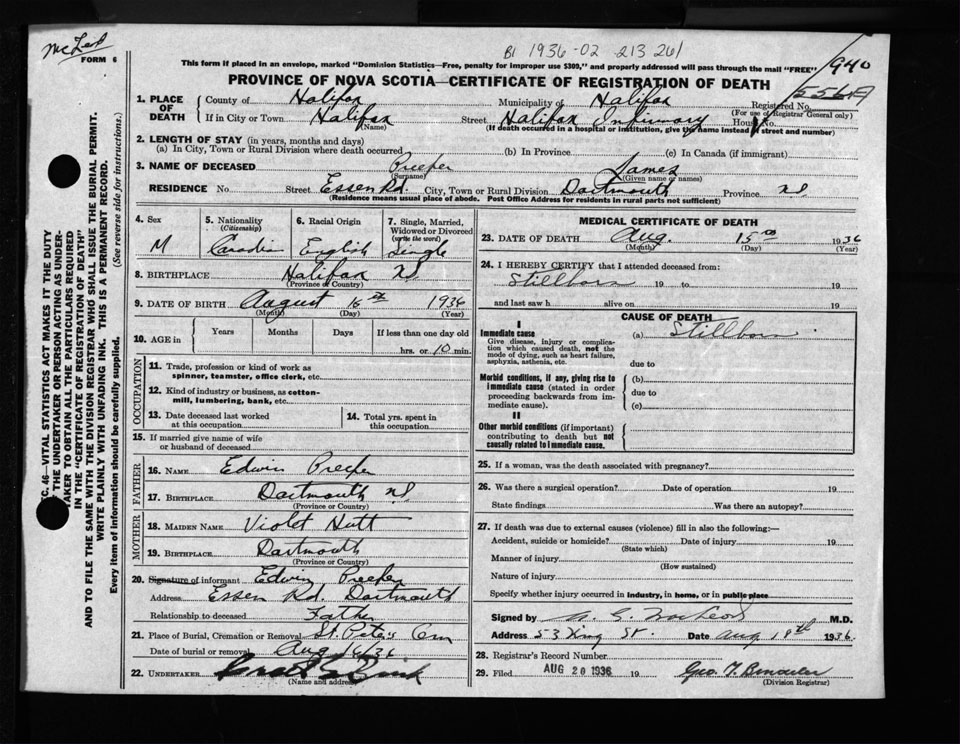 McLeod
FORM 6
B1 1936-02 213 261
This form if placed in an envelope, marked "Dominion Statistics—Free, penalty for improper use $300," and properly addressed will pass through the mail "FREE"
PROVINCE OF NOVA SCOTIA—CERTIFICATE OF REGISTRATION OF DEATH
940
1. PLACE OF DEATH County of Halifax Municipality of Halifax Registered No.
(For use of Registrar General only)
If in City or Town Halifax Street Halifax Infirmary House No.
(Name) (If death occurred in a hospital or institution, give the name instead of street and number)
2. LENGTH OF STAY (in years, months and days)
(a) In City, Town or Rural Division where death occurred (b) In Province (c) In Canada (if immigrant)
3. NAME OF DECEASED Preeper James
(Surname) (Given name or names)
RESIDENCE No. Street Essen Rd. City, Town or Rural Division Dartmouth Province NS
(Residence means usual place of abode. Post Office Address for residents in rural parts not sufficient)
4. Sex M
5. Nationality (Citizenship) Canadian
6. Racial Origin English
7. Single, Married, Widowed or Divorced (write the word) Single
8. BIRTHPLACE Halifax NS
(Province or Country)
9. DATE OF BIRTH August 16th 1936
(Month) (Day) (Year)
10. AGE in Years Months Days If less than one day old
hrs. or 10 min.
OCCUPATION
11. Trade, profession or kind of work as spinner, teamster, office clerk, etc.
12. Kind of industry or business, as cotton-mill, lumbering, bank, etc.
13. Date deceased last worked at this occupation
14. Total yrs. spent in this occupation
15. If married give name of wife or husband of deceased
FATHER
16. NAME Edwin Preeper
17. BIRTHPLACE Dartmouth NS
(Province or Country)
MOTHER
18. MAIDEN NAME Violet Hutt
19. BIRTHPLACE Dartmouth
(Province or Country)
20. Signature of informant Edwin Preeper
Address Essen Rd. Dartmouth
Relationship to deceased Father
21. Place of Burial, Cremation or Removal St. Peter's Cem
Date of burial or removal Aug 16/36
22. UNDERTAKER
(Name and address)
MEDICAL CERTIFICATE OF DEATH
23. DATE OF DEATH Aug. 15th 1936
(Month) (Day) (Year)
24. I HEREBY CERTIFY that I attended deceased from:
Stillborn 19 to 19
and last saw h alive on 19
CAUSE OF DEATH
I
Immediate cause (a) Stillborn
Give disease, injury or complication which caused death, not the mode of dying, such as heart failure, asphyxia, asthenia, etc.
due to
Morbid conditions, if any, giving rise to immediate cause (stated in order proceeding backwards from immediate cause).
(b)
due to
(c)
II
Other morbid conditions (if important) contributing to death but not causally related to immediate cause.
25. If a woman, was the death associated with pregnancy?
26. Was there a surgical operation? Date of operation 19
State findings Was there an autopsy?
27. If death was due to external causes (violence) fill in also the following:—
Accident, suicide or homicide? Date of injury 19
(State which)
Manner of injury
(How sustained)
Nature of injury
Specify whether injury occurred in industry, in home, or in public place
Signed by M.D.
Address 53 King St. Date Aug 18th 1936
28. Registrar's Record Number
29. Filed AUG 20 1936 19
(Division Registrar)
C. 46—VITAL STATISTICS ACT MAKES IT THE DUTY
OF THE UNDERTAKER OR PERSON ACTING AS UNDERTAKER TO OBTAIN ALL THE PARTICULARS REQUIRED
IN THE "CERTIFICATE OF REGISTRATION OF DEATH"
AND TO FILE THE SAME WITH THE DIVISION REGISTRAR WHO SHALL ISSUE THE BURIAL PERMIT.
WRITE PLAINLY WITH UNFADING INK. THIS IS A PERMANENT RECORD.
Every item of information should be carefully supplied. (See reverse side for instructions.)